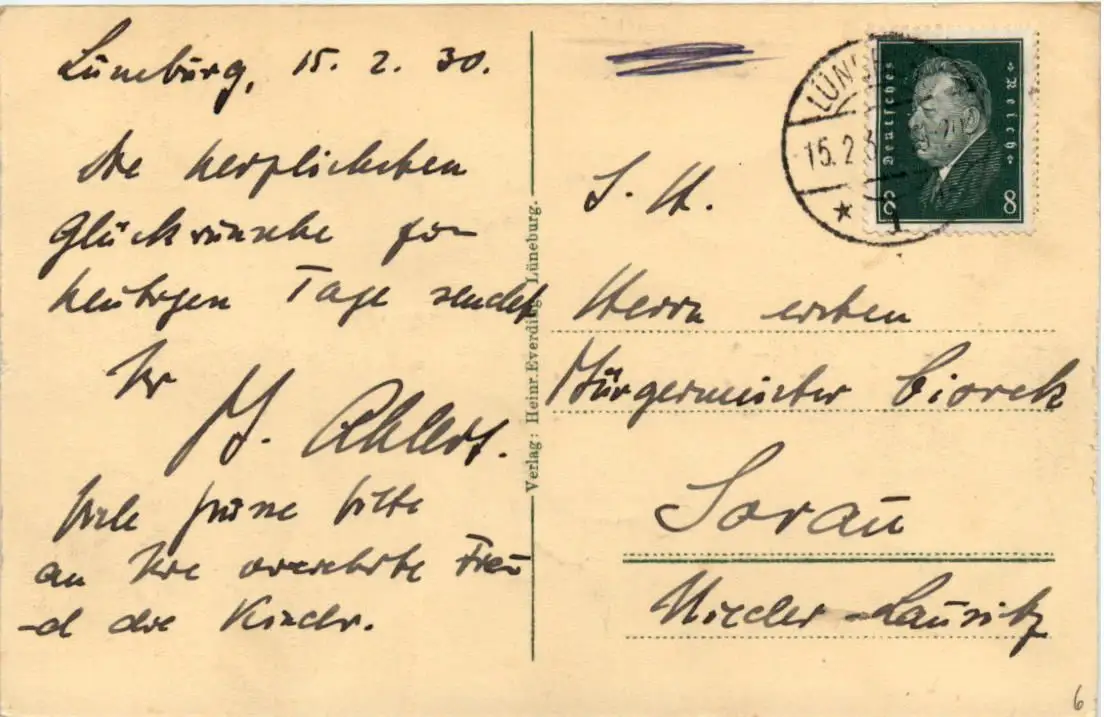 Lüneburg, 15. 2. 30.
Die herzlichsten
Glückwünsche zum
heutigen Tage sendet
Ihr
H. Ahlers.
Viele Grüsse bitte
an Ihre verehrte Frau
und die Kinder.
Verlag: Heinr. Everding, Lüneburg.
S. H.
Herrn ersten
Bürgermeister
Sorau
Nieder-Lausitz
LÜNE
15.2.3
* 1
Deutsches Reich
8 8
6